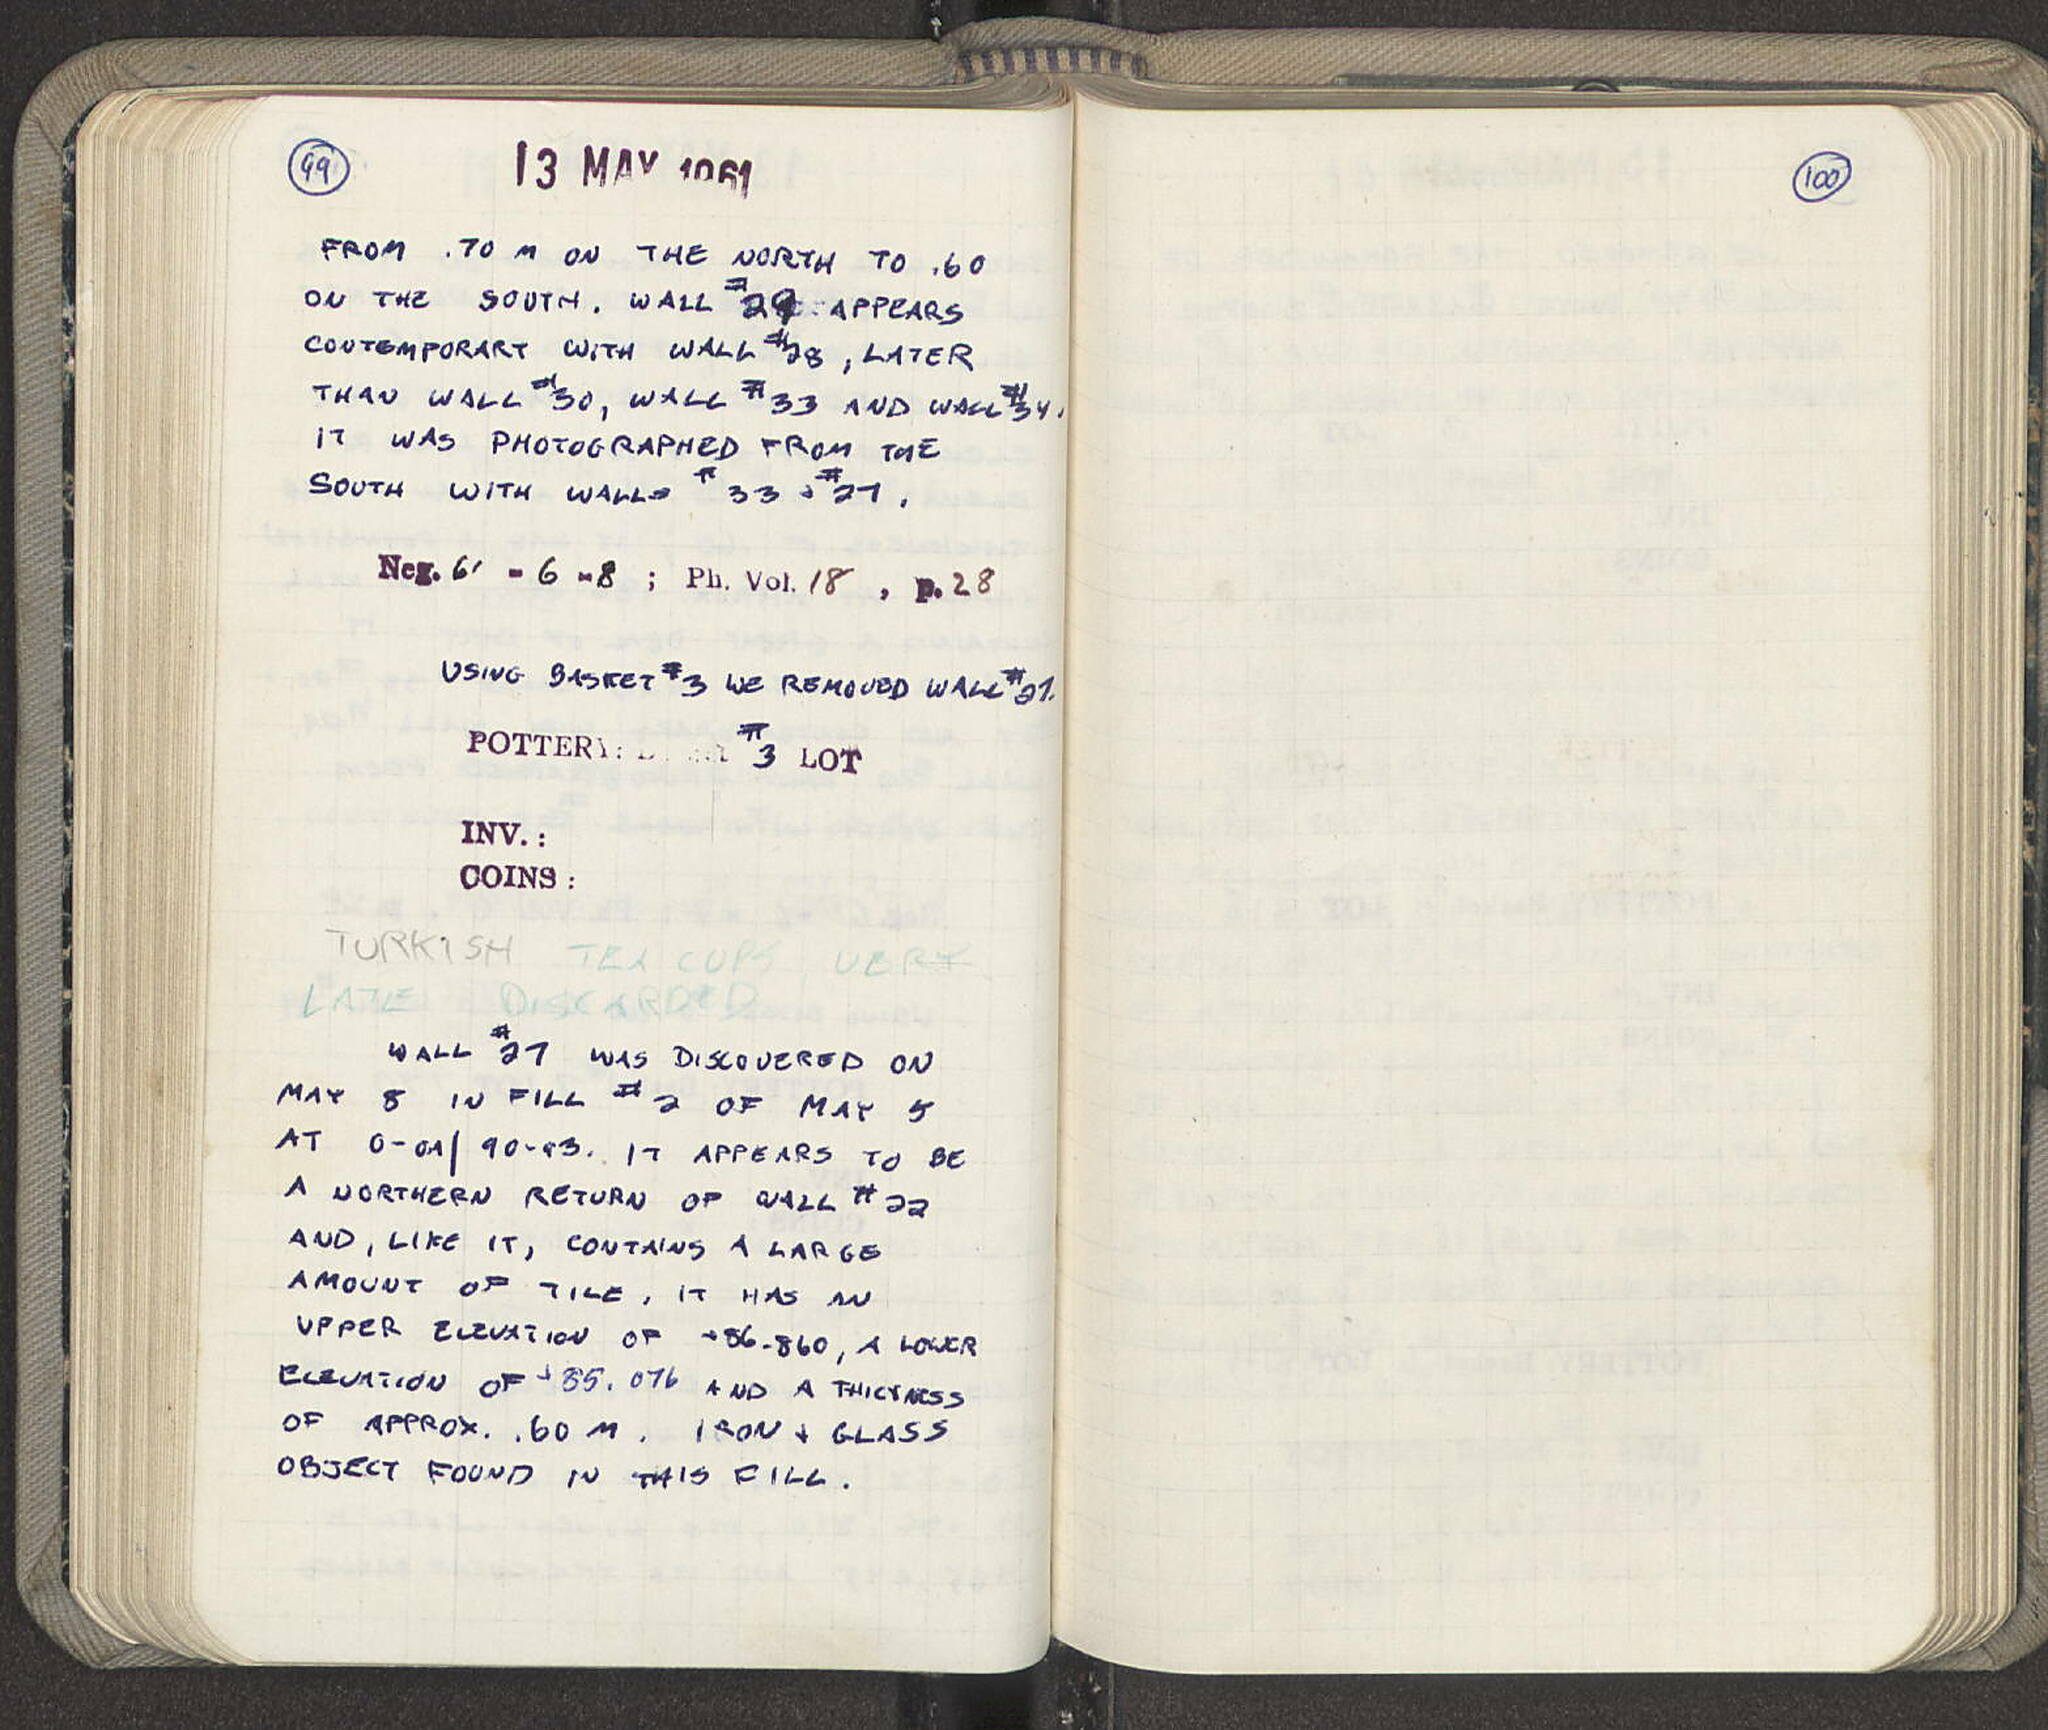 99
13 MAY 1961
FROM .70 M ON THE NORTH TO .60
ON THE SOUTH. WALL #29 APPEARS
CONTEMPORARY WITH WALL #28, LATER
THAN WALL #30, WALL #33 AND WALL #34.
IT WAS PHOTOGRAPHED FROM THE
SOUTH WITH WALLS #33 + #27.
Neg. 61 - 6 - 8 ; Ph. Vol. 18 , p. 28
USING BASKET #3 WE REMOVED WALL #27.
POTTERY: #3 LOT
INV. :
COINS :
TURKISH TEA CUPS VERY
LATE DISCARDED
WALL #27 WAS DISCOVERED ON
MAY 8 IN FILL #2 OF MAY 5
AT
IT APPEARS TO BE
A NORTHERN RETURN OF WALL #22
AND, LIKE IT, CONTAINS A LARGE
AMOUNT OF TILE. IT HAS AN
UPPER ELEVATION OF +86.860, A LOWER
ELEVATION OF +85.076 AND A THICKNESS
OF APPROX. .60 M. IRON + GLASS
OBJECT FOUND IN THIS FILL.
100